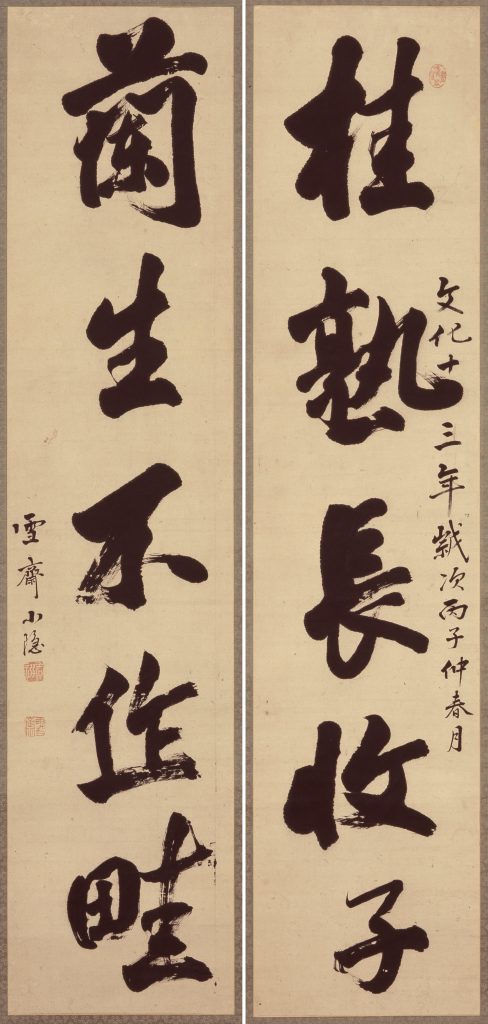 桂熟長收子
文化十三年歳次丙子仲春月
蘭生不作畦
雪齋小隠